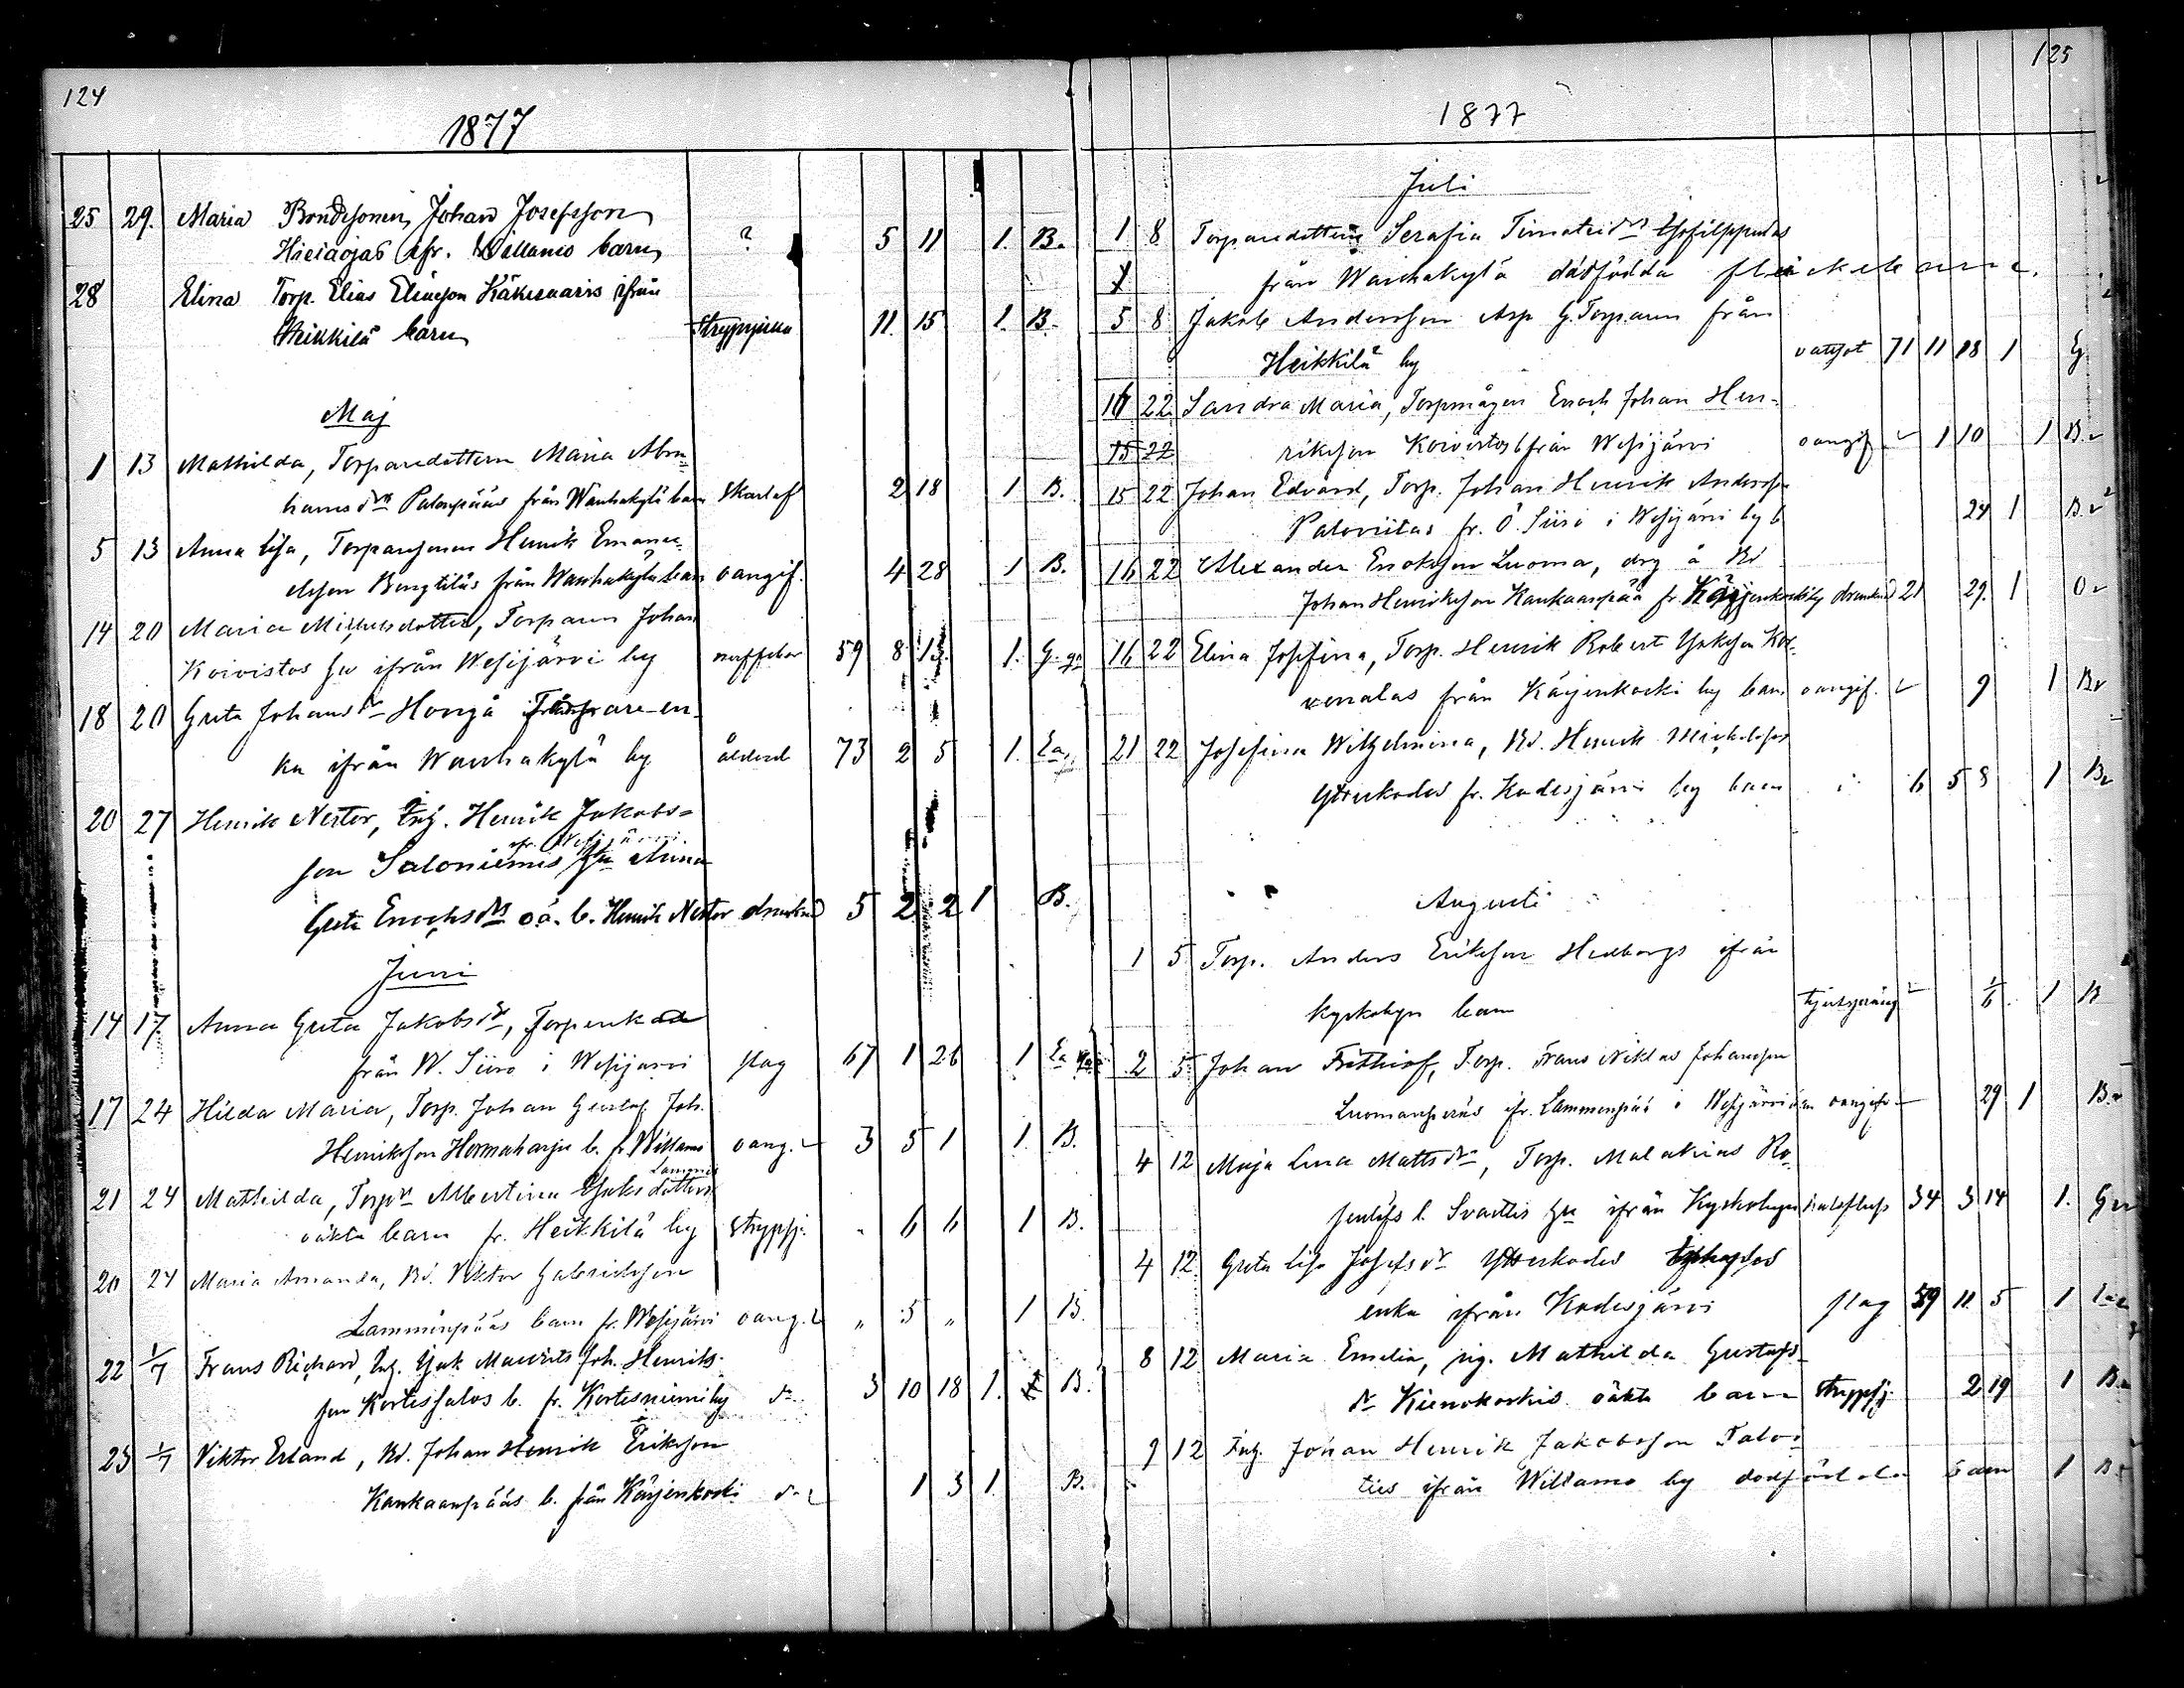 124
1877
25 29. Maria Bondesonen Johan Josefsson ?
Hieiaojas ifr. Willamo barn 5 11 1. B.
28 Elina Torp. Elias Eliasson Käkisaaris ifrån
Heikkilä barn Strypsjuka 11. 15 1. B.
Maj
1 13 Mathilda, Torparedottern Maria Abra-
hams dr Palonpääs från Wanhakylä barn Skarlaf 2 18 1 B.
5 13 Anna Lisa, Torparesonen Henrik Emanu-
elsson Bengtiläs från Wanhakylä barn oangif. 4 28 1 B.
14 20 Maria Mickelsdotter, Torparen Johan
Koivistos hu ifrån Wesijärvi by 59 8 13. 1. G.
18 20 Greta Johans dr Honga Torpare-en-
ka ifrån Wanhakylä by ålderd 73 2 5 1. Ea.
20 27 Henrik Nestor, Inh. Henrik Jakobs-
ifr. Wesijärvi
son Saloniemis hu Anna
Greta Enochs dr o.ä. b. Henrik Nestor drunknad 5 2 2 1 B.
Juni
14 17. Anna Greta Jakobs dr, Torpenka
från W. Siiro i Wesijärvi slag 67 1 26 1 Ea
17 24 Hilda Maria, Torp. Johan Gustaf Joh.
Henriksson Hormaharju b. fr. Willamo oang. 3 5 1 1. B.
21 24 Mathilda, Torp dr Albertina Isaks dotters
oäkta barn fr. Heikkilä by Strypsj. 6 6 1 B.
20 24 Maria Amanda, Bd. Viktor Gabrielsson
Lamminpääs barn fr. Wesijärvi oang. " 5 " 1 B.
22 1/7 Frans Richard, Inh. Isak Maurits Joh. Henriks-
son Kortessalos b. fr. Kortesniemi by do 3 10 18 1. B.
23 1/7 Viktor Erland, Bd. Johan Henrik Eriksson
Kankaanpääs b. från Kärjenkoski do 1 3 1. B.
125
1877
Juli
1 8 Torparedottern Serafia Timotei dr
från Wanhakylä dödfödda flickebarn.
5 8 Jakob Andersson Asp G. Torparen från
Heikkilä by vattsot 71 11 18 1 G
16 22 Sandra Maria, Torpmågen Enoch Johan Hen-
15 22 riksson Koivistos b från Wesijärvi oangif 1 10 1 B
15 22 Johan Edvard, Torp. Johan Henrik Andersson
Paloviitas fr. Ö. Siiro i Wesijärvi by b 24 1 B.
16 22 Alexander Enoksson Luoma, drg å Bd
Johan Henriksson Kankaanpää fr. Kärjenkoski by drunknad 21 29. 1 O
16 22 Elina Josefina, Torp. Henrik Robert Isaksson Kor-
venalas från Kärjenkoski by barn oangif. 9 1 B
21 22 Josefina Wilhelmina, Bd. Henrik Mickelsson
Ytterkodes fr. Kodesjärvi by barn 6 5 8 1 B
Augusti
1 5 Torp. Anders Eriksson Hedborgs ifrån
kyrkobyn barn 1/6. 1 B
2 5 Johan Frithiof, Torp. Frans Niklas Johansson
Luomanperäs ifr. Lammenpää i Wesijärvi oangif. 29 1 B.
4 12 Maja Lena Matts dr, Torp. Malakias Ro-
senlöfs l. Svartis hu ifrån Kyrkobyn halsfluss 34 3 14 1. G
4 12 Greta Lisa Josefs dr Ytterkodes
enka ifrån Kodesjärvi slag 59 11. 5 1
8 12 Maria Emelia, pig. Mathilda Gustafs-
dr Kienokoskis oäkta barn strypsj. 2 19 1 B.
9 12 Inh. Johan Henrik Jakobsson Talo-
ties ifrån Willamo by dödfödda barn 1 B